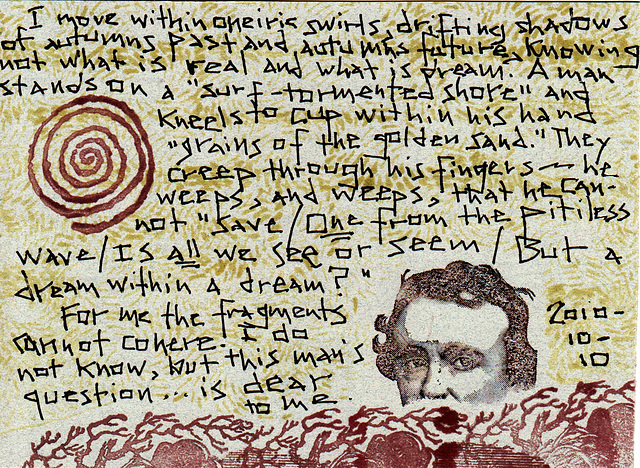 I move within oneiric swirls, drifting shadows
of autumns past and autumns future, knowing
not what is real and what is dream. A man
stands on a "surf-tormented shore" and
kneels to cup within his hand
"grains of the golden sand." They
creep through his fingers — he
weeps, and weeps, that he can-
not "save / One from the pitiless
wave / Is all we see or seem / But a
dream within a dream?"
For me the fragments
cannot cohere. I do
not know, but this man's
question... is dear
to me.
2010-
10-
10